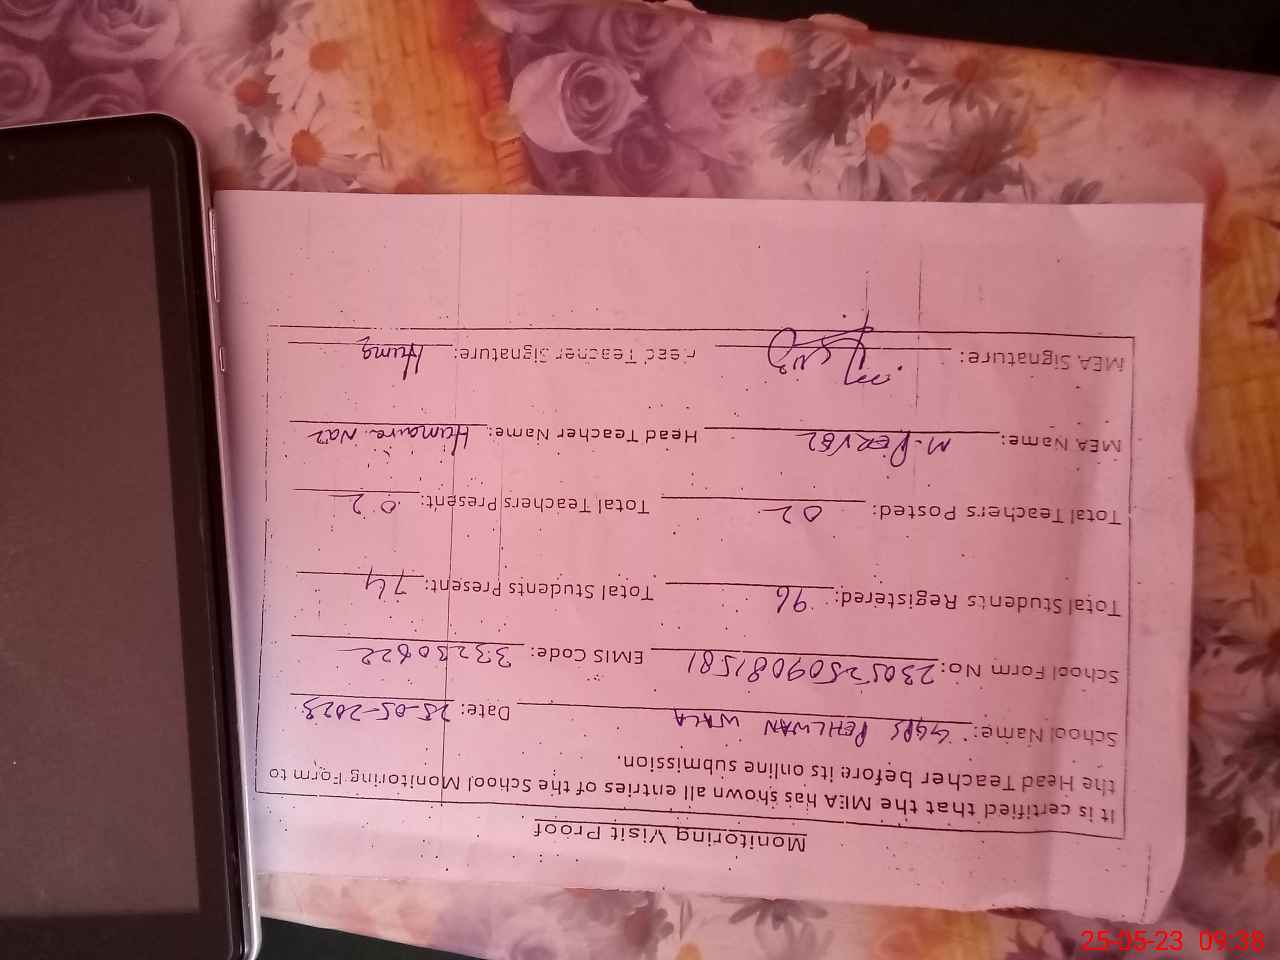 Monitoring Visit Proof
It is certified that the MEA has shown all entries of the School Monitoring Form to
the Head Teacher before its online submission.
School Name: GGPS PEHLWAN WALA Date: 25-05-2023
School Form No: 23052509081581 EMIS Code: 33230622
Total Students Registered: 96 Total Students Present: 74
Total Teachers Posted: 02 Total Teachers Present: 02
MEA Name: M. PERVEZ Head Teacher Name: Humaira Naz
MEA Signature: Head Teacher Signature: Huma
25-05-23 09:38